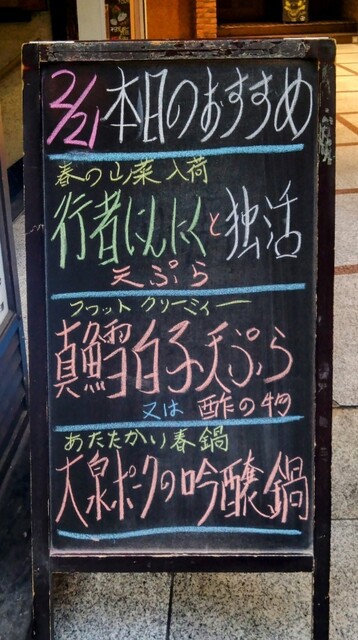 2/21 本日のおすすめ
春の山菜入荷
行者にんにくと独活
天ぷら
フワット クリーミィー
真鱈白子天ぷら
又は 酢の物
あたたかい春鍋
大泉ポークの吟醸鍋